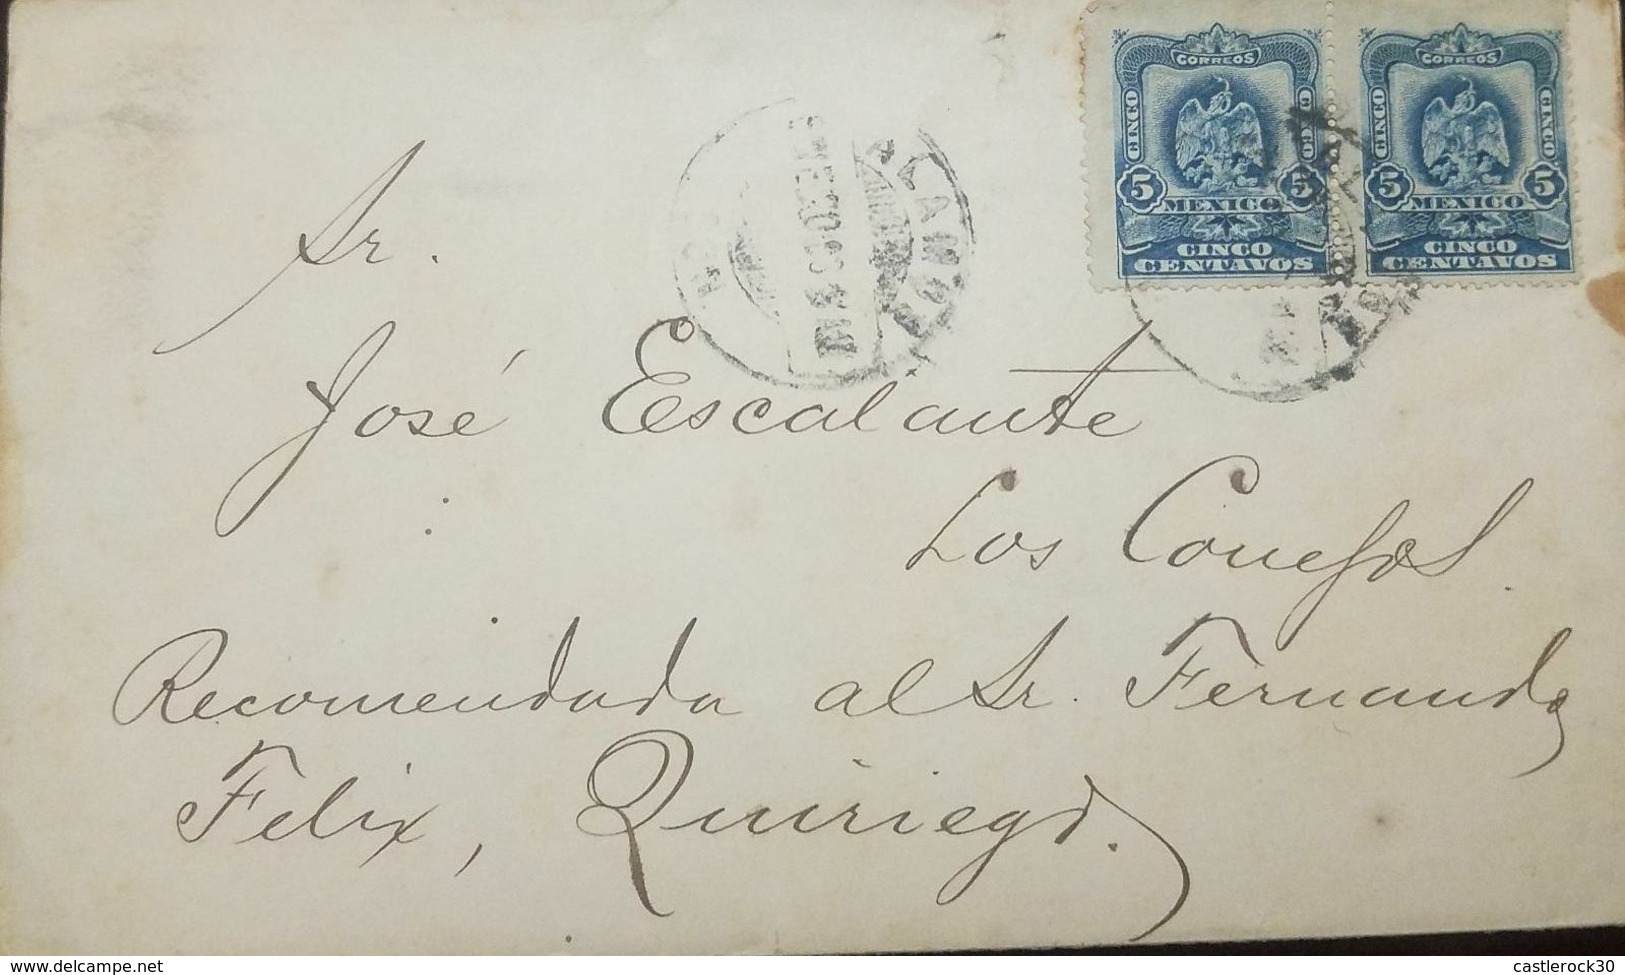 CORREOS
CINCO CINCO
5 5
MEXICO
CINCO
CENTAVOS
CORREOS
CINCO CINCO
5 5
MEXICO
CINCO
CENTAVOS
Sr.
José Escalante
Los Conejos.
Recomendada al Sr. Fernando
Felix, Quiriego.
www.delcampe.net
castlerock30